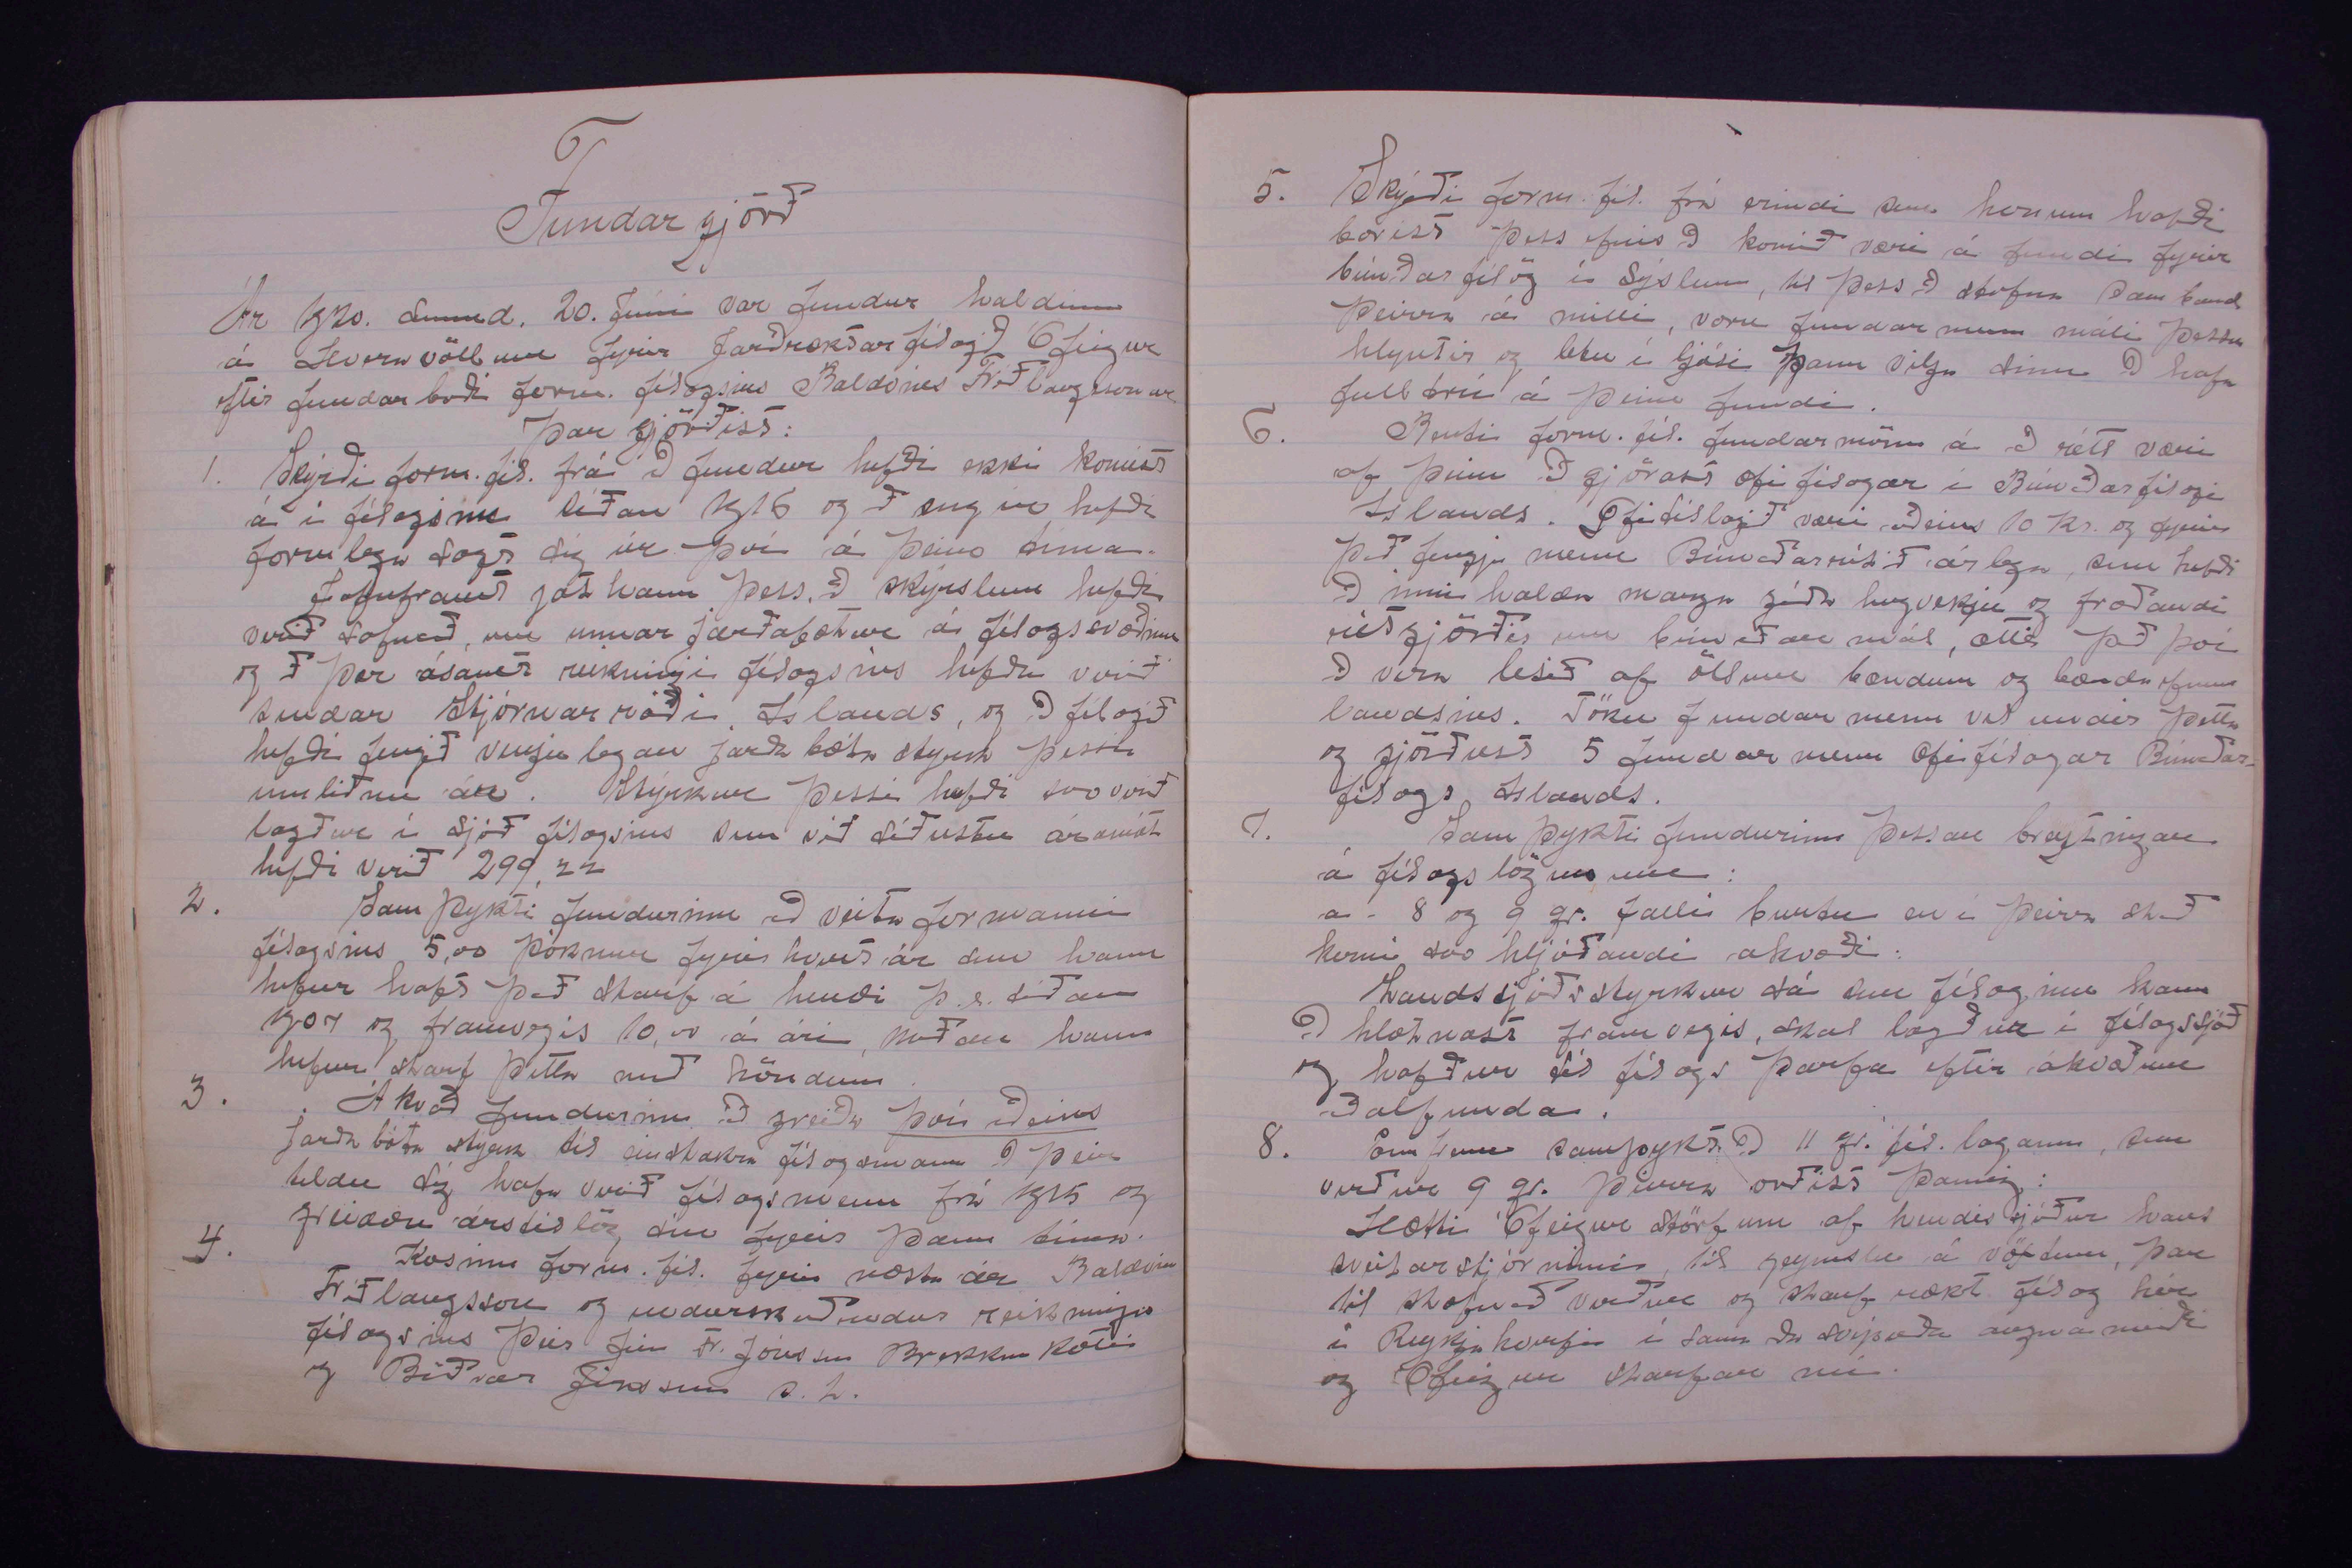 Fundargjörð
Ár 1920. sunnud. 20. Júní var fundur haldinn
á Hveravöllum fyrir Jarðræktarfélagið Ófeigur
eftir fundarboði form. félagsins Baldvins Friðlaugssonar
Þar gjörðist:
1. Skýrði form. fél. frá að fundur hefði ekki komist
á í félaginu síðan 1916 og að engin hefði
formlega sagt sig úr því á þeim tíma.
Jafnframt gat hann þess, að skýrslum hefði
verið safnað, um unnar jarðabætur á félagssvæðinu
og að þær ásamt reikningi félagsins hefðu verið
sendar Stjórnarráði Íslands, og að félagið
hefði fengið venjulegan jarðabóta styrk þessi
umliðnu ár. Styrkur þessi hefði svo verið
lagður í sjóð félagsins sem við síðustu áramót
hefði verið 299,22
2. Samþykti fundurinn að veita formanni
félagsins 5,00 þóknun fyrir hvert ár sem hann
hefur haft það starf á hendi þ.e. síðan
1907 og framvegis 10,00 á ári, meðan hann
hefur starf þetta með höndum.
3. Ákvað fundurinn að greiða því aðeins
jarðabóta styrk til einstakra félagsmanna að þeir
teldu sig hafa verið félagsmenn frá 1915 og
greiddu árstillög sín fyrir þann tíma.
4. Kosinn form. fél. fyrir næsta ár Baldvin
Friðlaugsson og endurskoðendur reikninga
félagsins þeir Jón Fr. Jónsson Brekknakoti
og Böðvar Jónsson s.st.
5. Skýrði form. fél. frá erindi sem honum hafði
borist þess efnis að komið væri á fundi fyrir
búnaðarfélög í Sýslunni, til þess að stofna samband
þeirra á milli, voru fundarmenn máli þessu
hlyntir og létu í ljósi þann vilja sinn að hafa
fulltrúa á þeim fundi.
6. Benti form. fél. fundarmönnum á að rétt væri
af þeim að gjörast æfifélagar í Búnaðarfélagi
Íslands. Æfitillagið væri aðeins 10 kr. og fyrir
það fengju menn Búnaðarritið árlega, sem hefði
að inni halda marga góða hugvekju og fræðandi
ritgjörðir um búnaðarmál, ætti það því
að vera lesið af öllum bændum og bændaefnum
landsins. Tóku fundarmenn vel undir þetta
og gjörðust 5 fundarmenn æfifélagar Búnaðar-
félags Íslands.
7. Samþykti fundurinn þessar breytingar
á félagslögunum:
a - 8 og 9 gr. falli burtu en í þeirra stað
komi svo hljóðandi ákvæði:
Landssjóðsstyrkur sá sem félaginu kann
að hlotnast framvegis, skal lagður í félagssjóð
og hafður til félags þarfa eftir ákvæðum
aðalfunda.
8. Ennfremur samþykt að 11 gr. fél. laganna, sem
verður 9 gr. þeirra orðist þannig:
Hætti Ófeigur störfum af hendist sjóður hans
sveitarstjórninni, til geymslu á vöxtum, þar
til stofnað verður og starfrækt félag hér
í Reykjahverfi í sama eða svipaða augnamiði
og Ófeigur starfar nú.